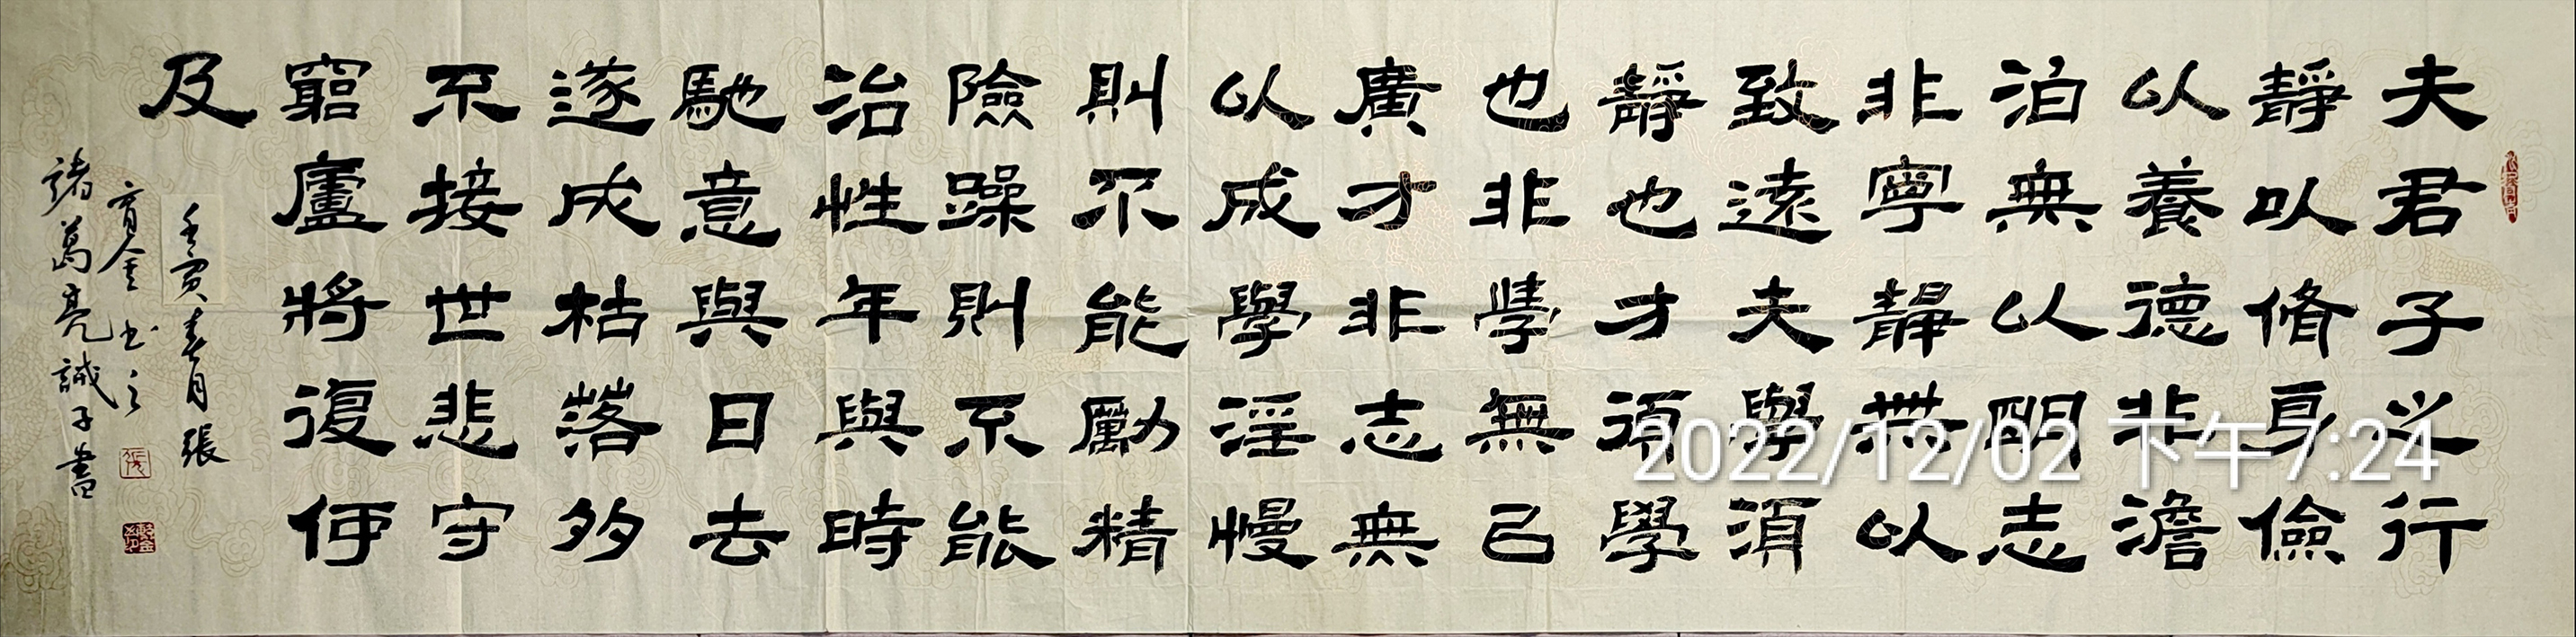 夫君子之行
靜以脩身儉
以養德非澹
泊無以明志
非寧靜無以
致遠夫學須
靜也才須學
也非學無已
廣才非志無
以成學淫慢
則不能勵精
險躁則不能
治性年與時
馳意與日去
遂成枯落多
不接世悲守
窮廬將復何
及
壬寅春月張
育金书之
諸葛亮誡子書
2022/12/02 下午7:24